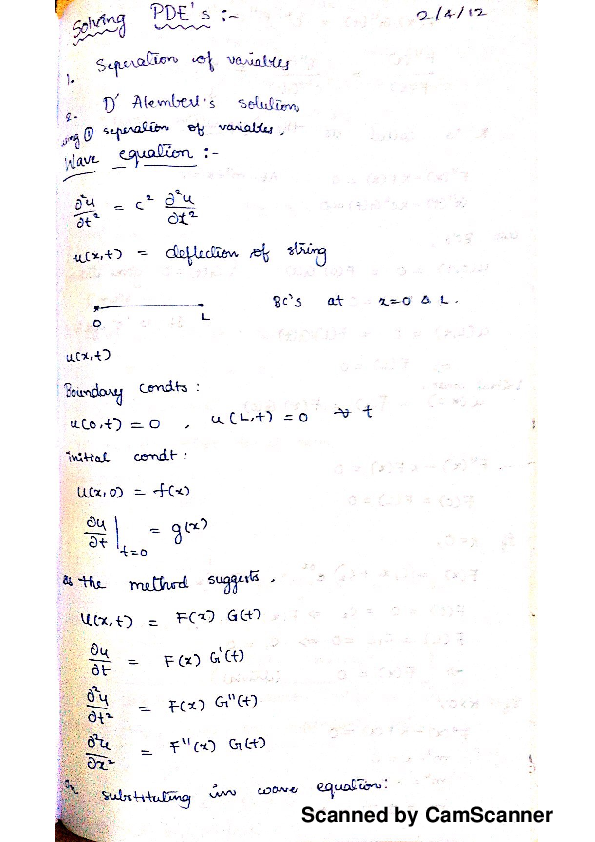 Solving PDE's :- 2/4/12
1. Seperation of variables
2. D' Alembert's solution
using ① seperation of variables.
Wave equation :-
∂²u/∂t² = c² ∂²u/∂x²
u(x,t) = deflection of string
BC's at x=0 & L.
0 L
u(x,t)
Boundary condts :
u(0,t) = 0 , u(L,t) = 0 ∀ t
initial condt :
u(x,0) = f(x)
∂u/∂t |t=0 = g(x)
as the method suggests,
u(x,t) = F(x) G(t)
∂u/∂t = F(x) G'(t)
∂²u/∂t² = F(x) G''(t)
∂²u/∂x² = F''(x) G(t)
On substituting in wave equation:
Scanned by CamScanner